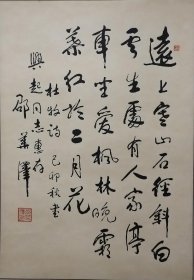 遠上寒山石徑斜白
雲生處有人家停
車坐愛楓林晚霜
葉紅於二月花
杜牧詩 己卯秋書
興起同志惠存
邵華澤